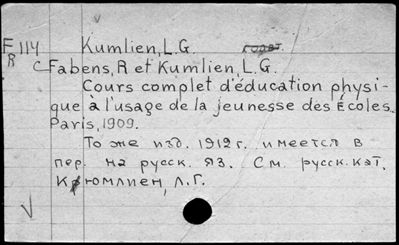 F 114 Kumlien, L.G.
R CFabens, R et Kumlien, L.G.
Cours complet d'éducation physi-
que à l'usage de la jeunesse des Écoles.
Paris, 1909.
То же изд. 1912 г. имеется в
пер. на русск. яз. См. русск. кат.
Крюмлиен, Л.Г.